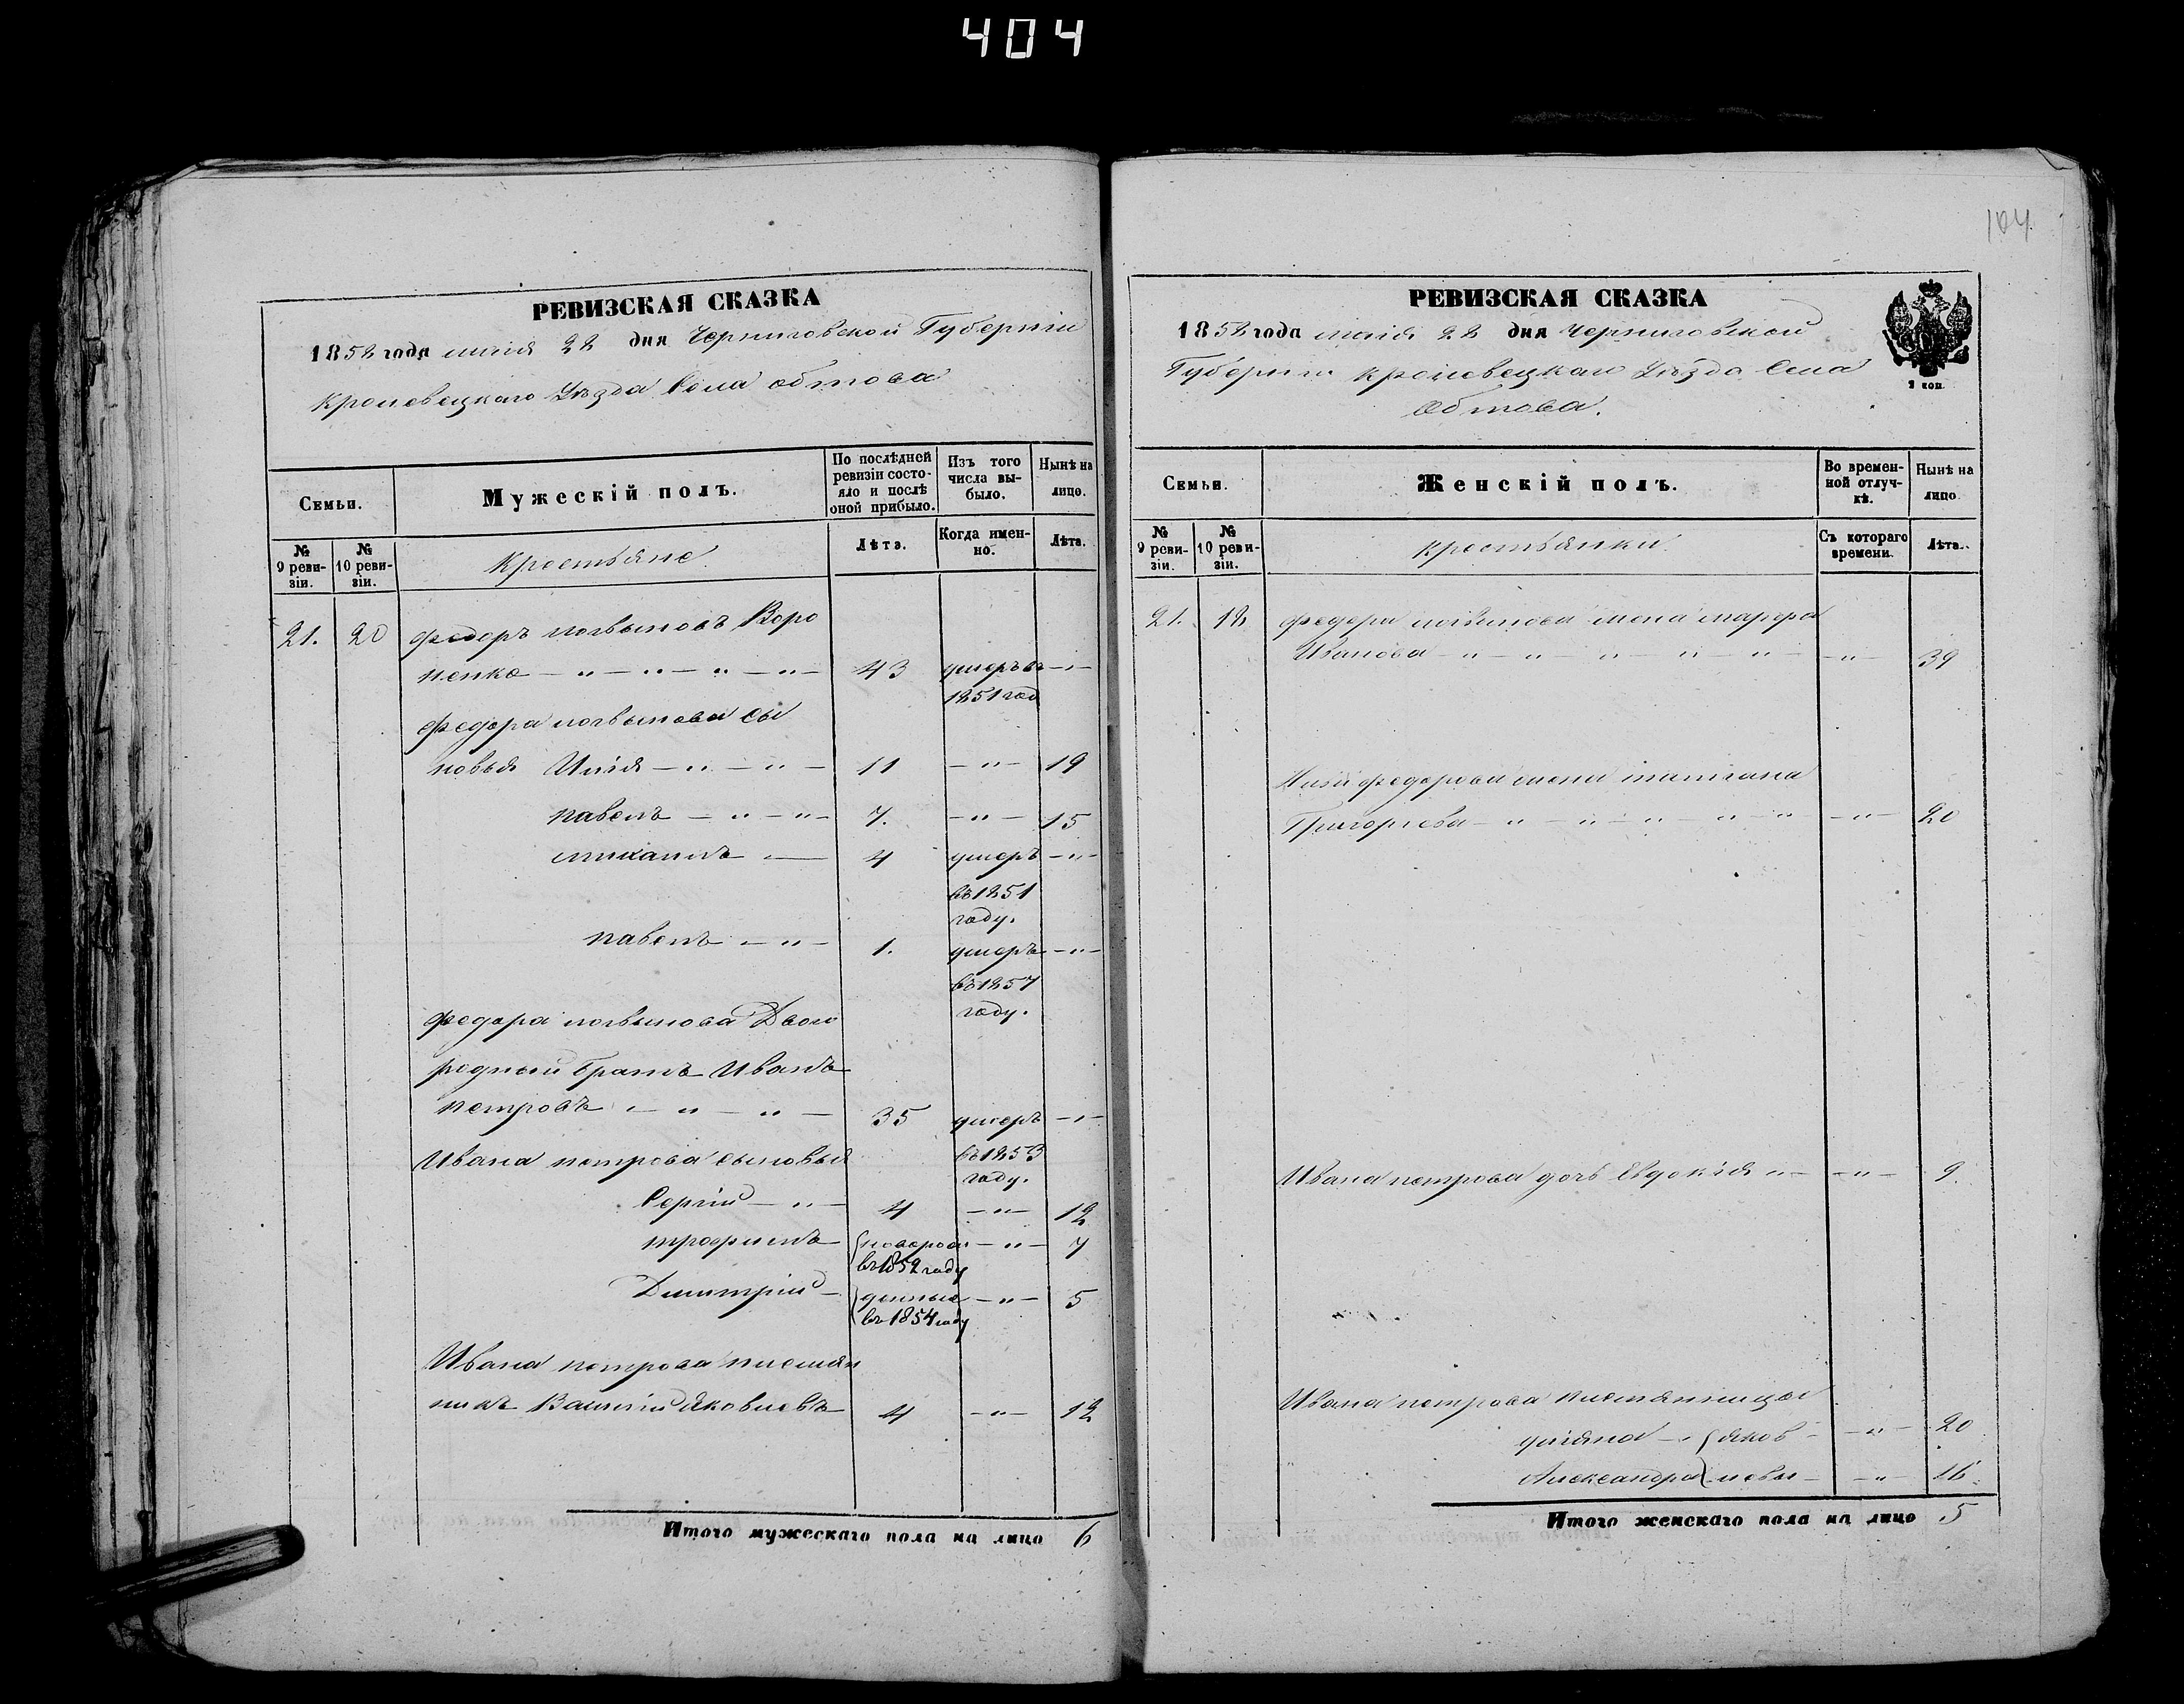 404
104
РЕВИЗСКАЯ СКАЗКА
1858 года маія 22 дня Черниговской Губерніи
Кролевецкаго Уѣзда Села Обтова
Семьи.
Мужескій полъ.
По послѣдней ревизіи состояло и послѣ оной прибыло.
Изъ того числа выбыло.
Нынѣ на лицо.
№ 9 ревизіи.
№ 10 ревизіи.
Крестьяне
Лѣта.
Когда именно.
Лѣта.
21. 20 Федоръ Логвыновъ Воро
ненко — „ — „ — „ — „ — 43 умеръ въ — „ —
1851 год
Федора Логвынова сы
новья Илія — „ — „ — 11 — „ — 19
Павелъ — „ — „ — 7. — „ — 15
Михаилъ — 4 умеръ — „ —
въ 1851
году.
Павелъ — „ — 1. умеръ — „ —
въ 1857
году.
Федора Логвынова Двою
родный братъ Иванъ
Петровъ — „ — „ — 35 умеръ — „ —
въ 1853
году.
Ивана Петрова сыновья
Сергій — „ — 4 — „ — 12
Трофимъ — новорож — „ — 7
въ 1852 году
Димитрій — денные — „ — 5
въ 1854 году
Ивана Петрова племян
никъ Василій Яковлевъ — 4 — „ — 12
Итого мужескаго пола на лицо 6
РЕВИЗСКАЯ СКАЗКА
1858 года маія 22 дня Черниговской
Губерніи Кролевецкаго Уѣзда Села
Обтова.
2 коп.
Семьи.
Женскій полъ.
Во временной отлучкѣ.
Нынѣ на лицо.
№ 9 ревизіи.
№ 10 ревизіи.
Крестьянки
Съ котораго времени.
Лѣта.
21. 18 Федора Логвинова жена Марфа
Иванова — „ — „ — „ — „ — „ — — „ — 39
Иліи Федорова жена Татіана
Григорьева — „ — „ — „ — „ — „ — — „ — 20
Ивана Петрова дочь Евдокія „ — — „ — 9.
Ивана Петрова племянницы
Уліяна — „ Яков — — „ — 20
Александра левы — — „ — 16.
Итого женскаго пола на лицо 5